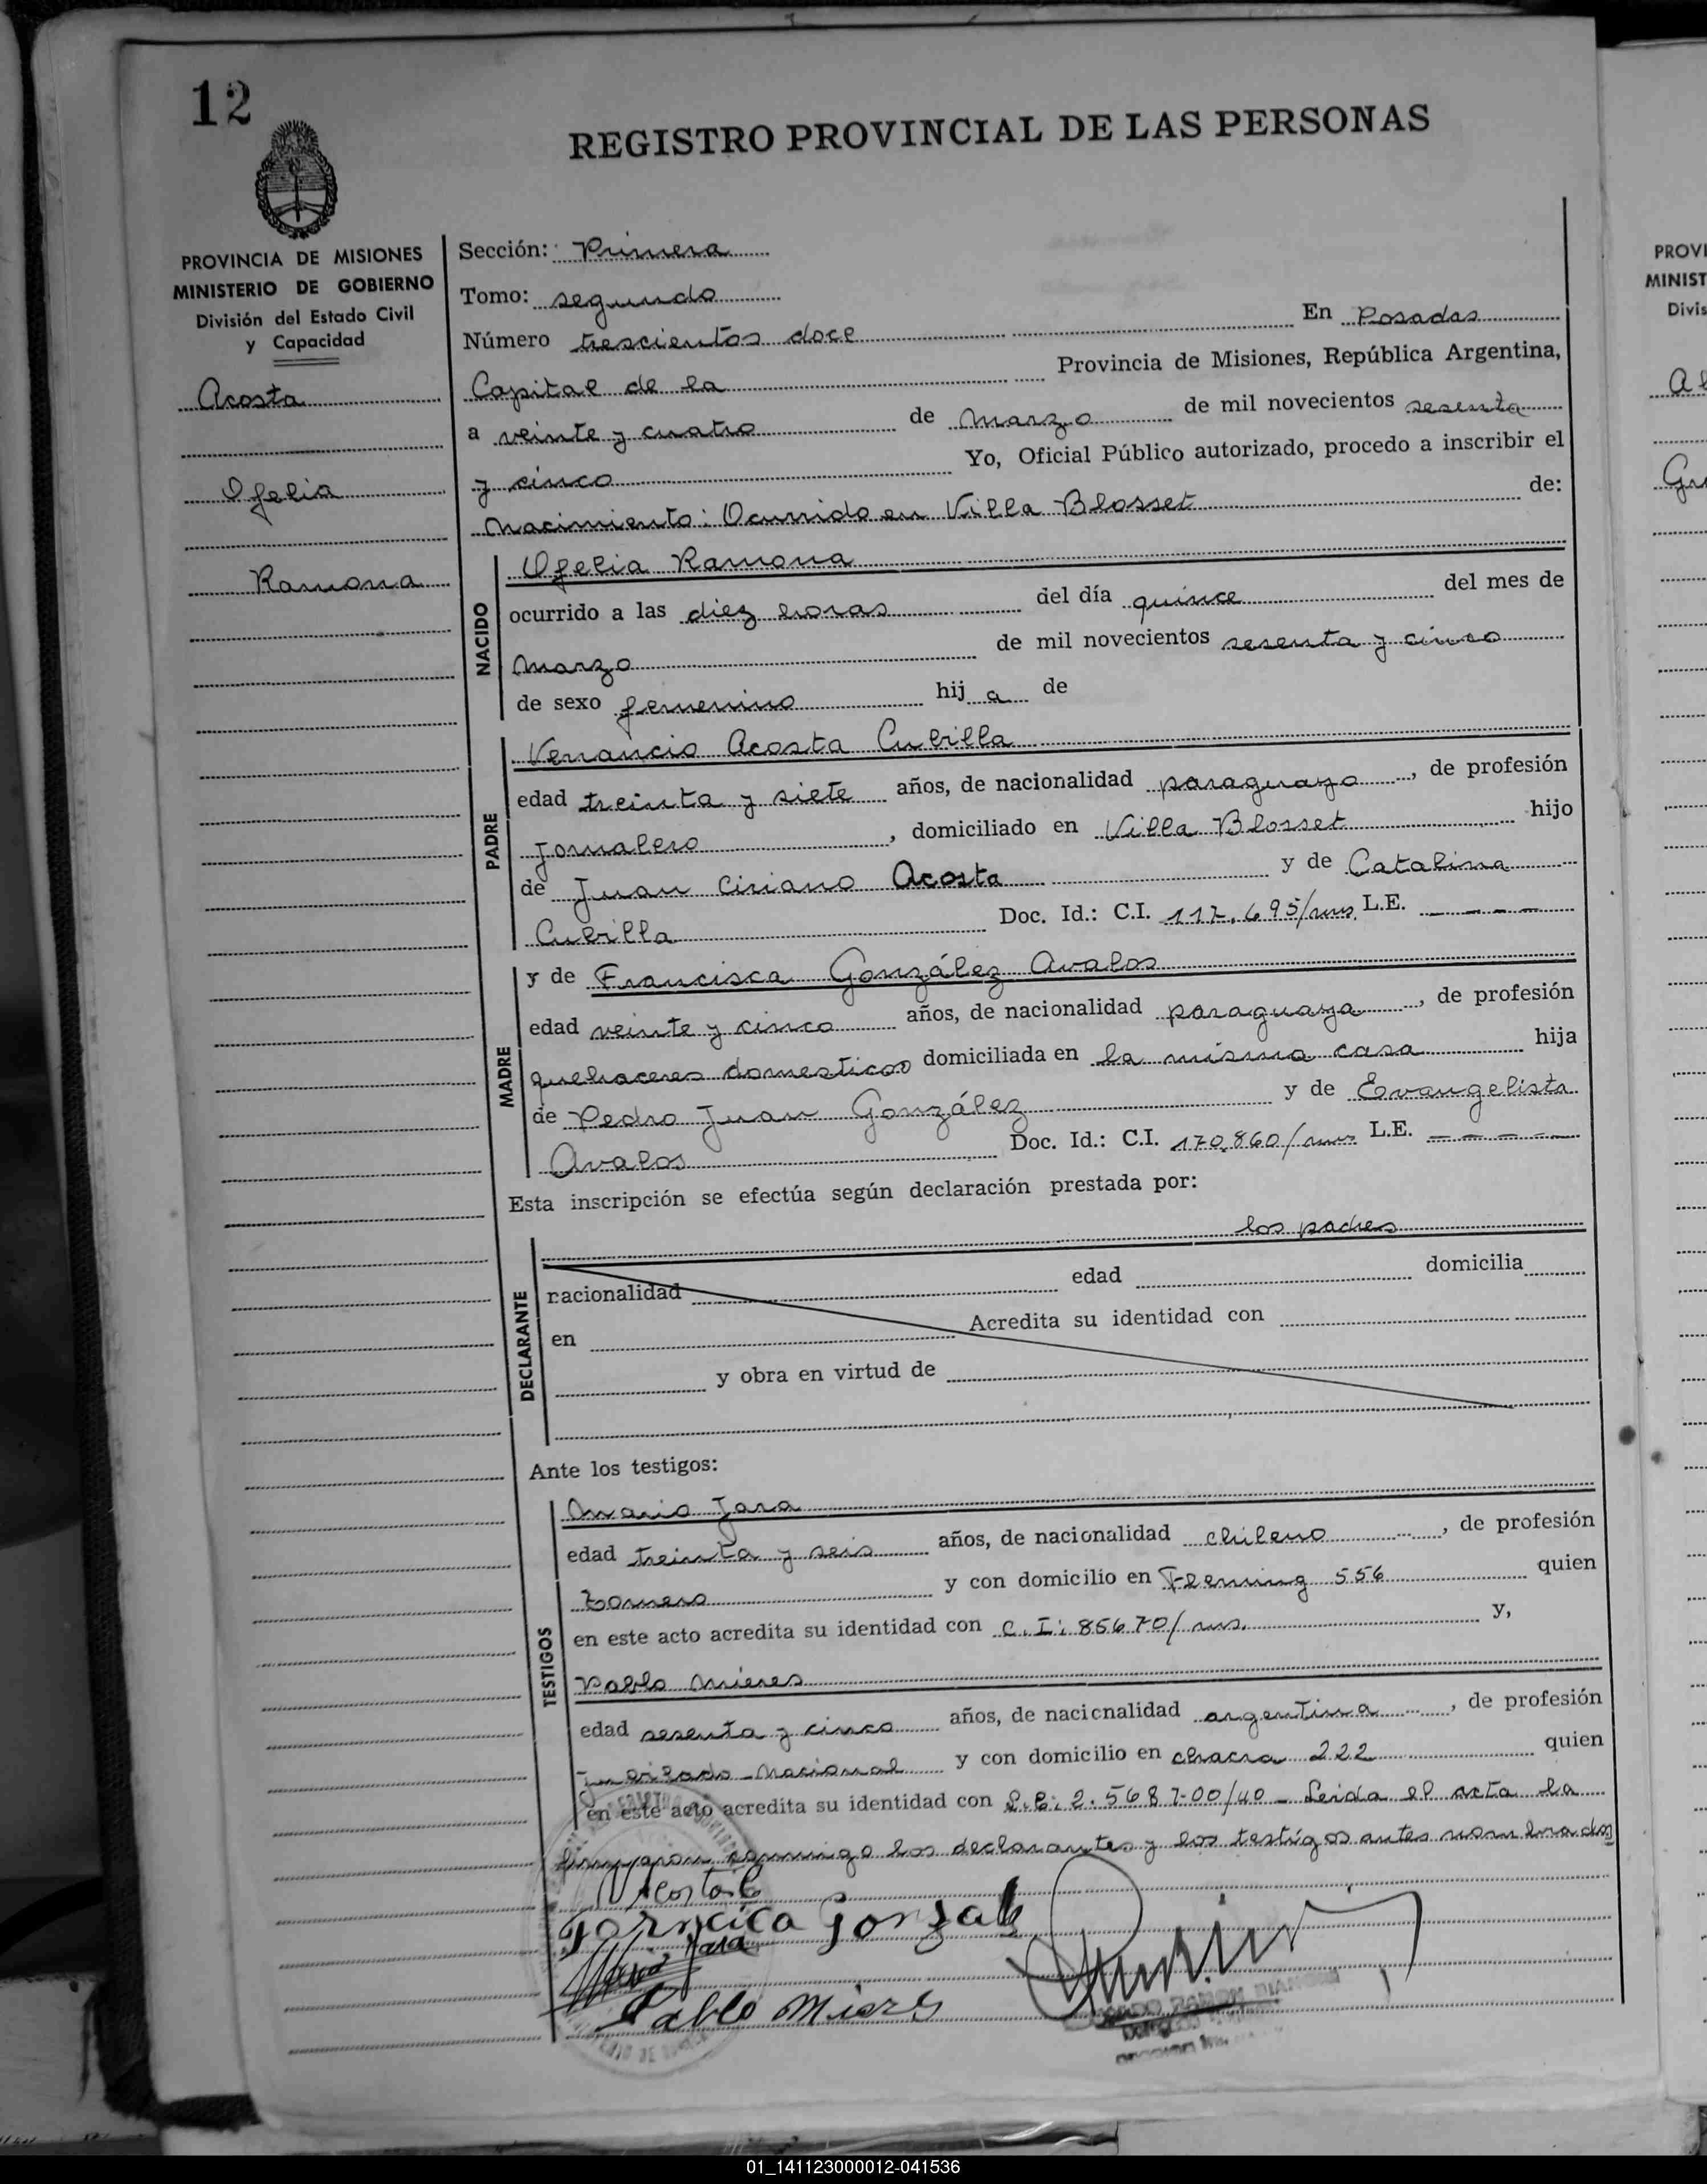 12
REGISTRO PROVINCIAL DE LAS PERSONAS
PROVINCIA DE MISIONES
MINISTERIO DE GOBIERNO
División del Estado Civil
y Capacidad
Acosta
Ofelia
Ramona
Sección: Primera
Tomo: segundo
Número trescientos doce En Posadas
Capital de la Provincia de Misiones, República Argentina,
a veinte y cuatro de Marzo de mil novecientos sesenta
y cinco Yo, Oficial Público autorizado, procedo a inscribir el
Nacimiento: Ocurrido en Villa Blosset de:
NACIDO
Ofelia Ramona
ocurrido a las diez horas del día quince del mes de
Marzo de mil novecientos sesenta y cinco
de sexo femenino hija de
PADRE
Venancio Acosta Cubilla
edad treinta y siete años, de nacionalidad paraguayo, de profesión
Jornalero, domiciliado en Villa Blosset hijo
de Juan Ciriano Acosta y de Catalina
Cubilla Doc. Id.: C.I. 117.695/mns L.E. ----
MADRE
y de Francisca González Avalos
edad veinte y cinco años, de nacionalidad paraguaya, de profesión
quehaceres domesticos domiciliada en la misma casa hija
de Pedro Juan González y de Evangelista
Avalos Doc. Id.: C.I. 170.860/mns L.E. -----
Esta inscripción se efectúa según declaración prestada por:
los padres
DECLARANTE
nacionalidad edad domicilia
en Acredita su identidad con
y obra en virtud de
Ante los testigos:
TESTIGOS
Mario Jara
edad treinta y seis años, de nacionalidad chileno, de profesión
tornero y con domicilio en Fleming 556 quien
en este acto acredita su identidad con C.I: 85670/mns. y,
Pablo Mieres
edad sesenta y cinco años, de nacionalidad argentina, de profesión
Jubilado-Nacional y con domicilio en chacra 222 quien
en este acto acredita su identidad con L.E: 2.568700/40 - Leida el acta la
firmaron conmigo los declarantes y los testigos antes nombrados
Acosta C
Forncica Gonzalz
Mario Jara
Pablo Mieres
RAMON
PROVI
MINIST
Divis
01_141123000012-041536